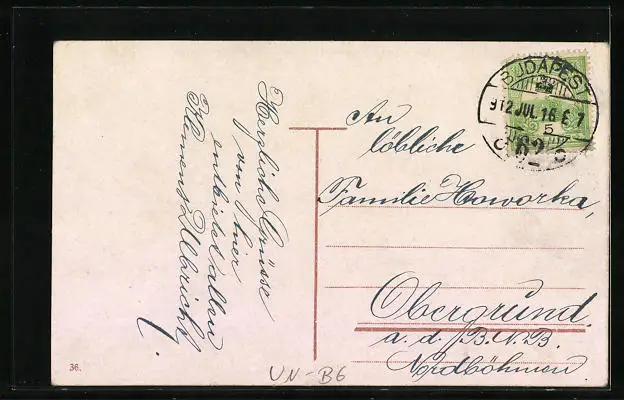 Herzliche Grüsse
von hier
entbietet allen
Klemens Ulbricht.
An
löbliche
Familie Howorka,
Obergrund.
a. d. B. N. B.
Nordböhmen
BUDAPEST
912 JUL 16 E 7
5
62
36.
VN-B6